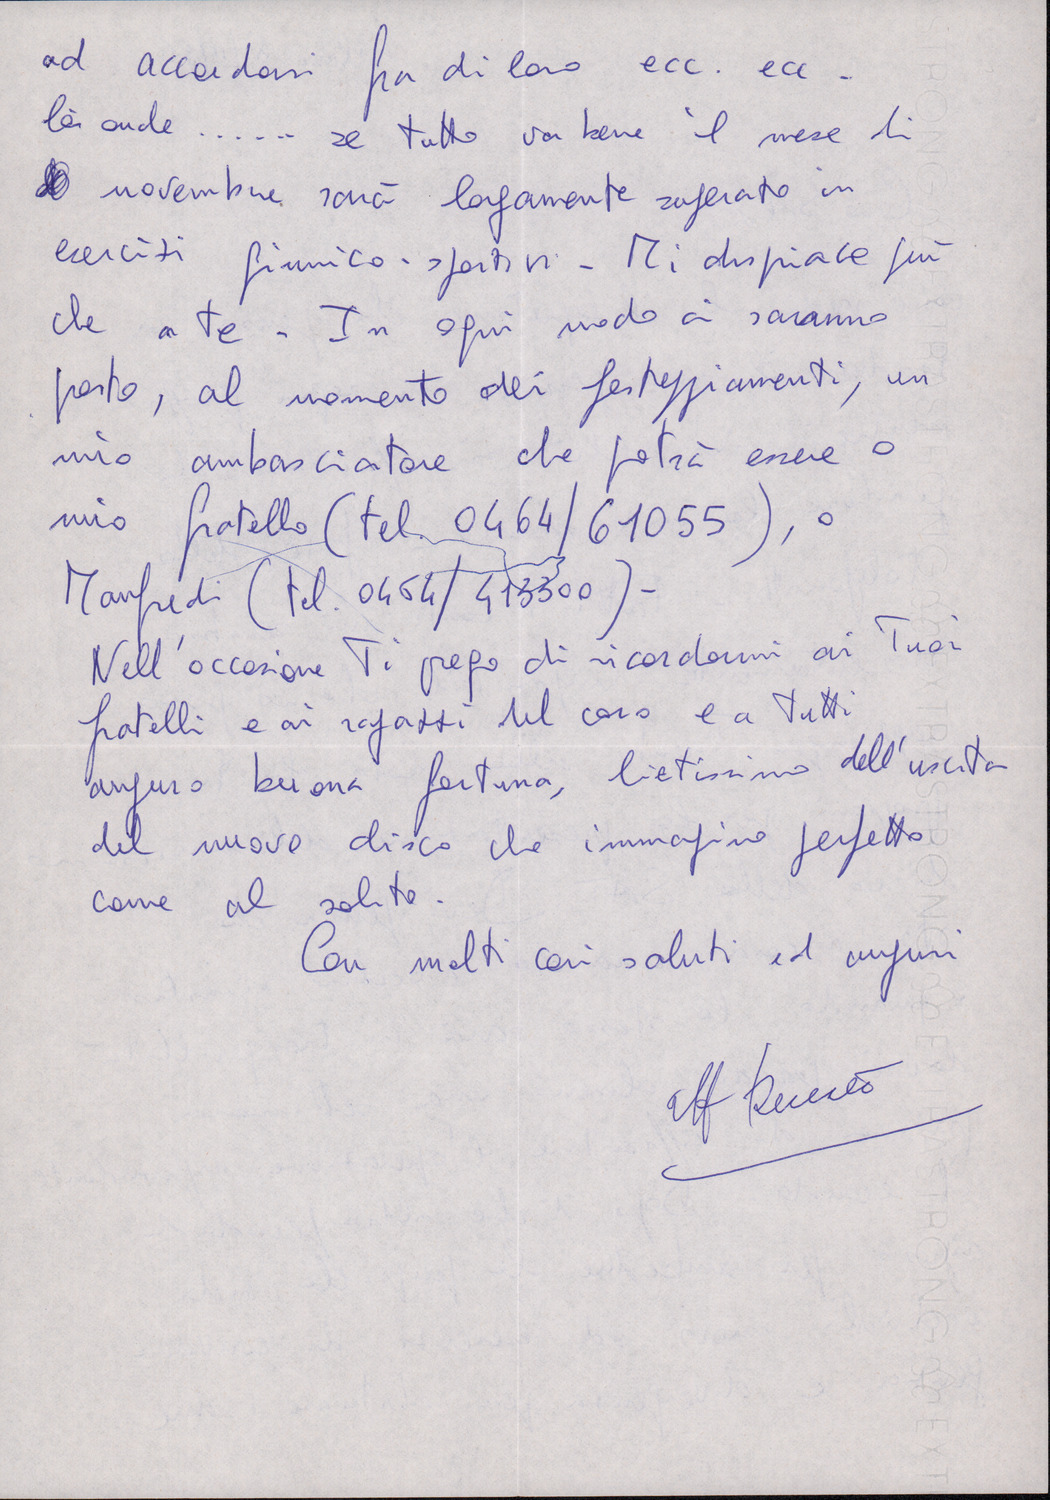 ad accordarsi fra di loro ecc. ecc -
là onde ...... se tutto va bene il mese di
novembre sarà largamente superato in
esercizi ginnico-sportivi - Mi dispiace più
che a te - In ogni modo ci saranno
posto, al momento dei festeggiamenti, un
mio ambasciatore che potrà essere o
mio fratello (tel. 0464/61055), o
Manfredi (tel. 0464/413300) -
Nell'occasione Ti prego di ricordarmi ai Tuoi
fratelli e ai ragazzi del coro e a tutti
auguro buona fortuna, lietissimo dell'uscita
del nuovo disco che immagino perfetto
come al solito.
Con molti cari saluti ed auguri
aff